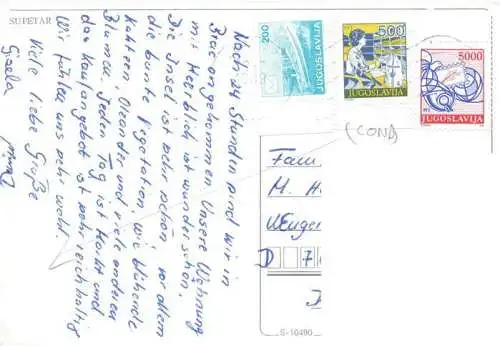 SUPETAR
Nach 24 Stunden sind wir in
Brac angekommen. Unsere Wohnung
mit Meerblick ist wunderschön.
Die Insel ist sehr schön vor allem
die bunte Vegetation, wie blühende
Kakteen, Oleander und viele anderen
Blumen. Jeden Tag ist Markt und
das Kaufangebot ist sehr reichhaltig
Wir fühlen uns sehr wohl.
Viele liebe Grüße
Gisela
200
JUGOSLAVIJA
500
JUGOSLAVIJA
5000
JUGOSLAVIJA
Fam
M. H
D 7
S-10490